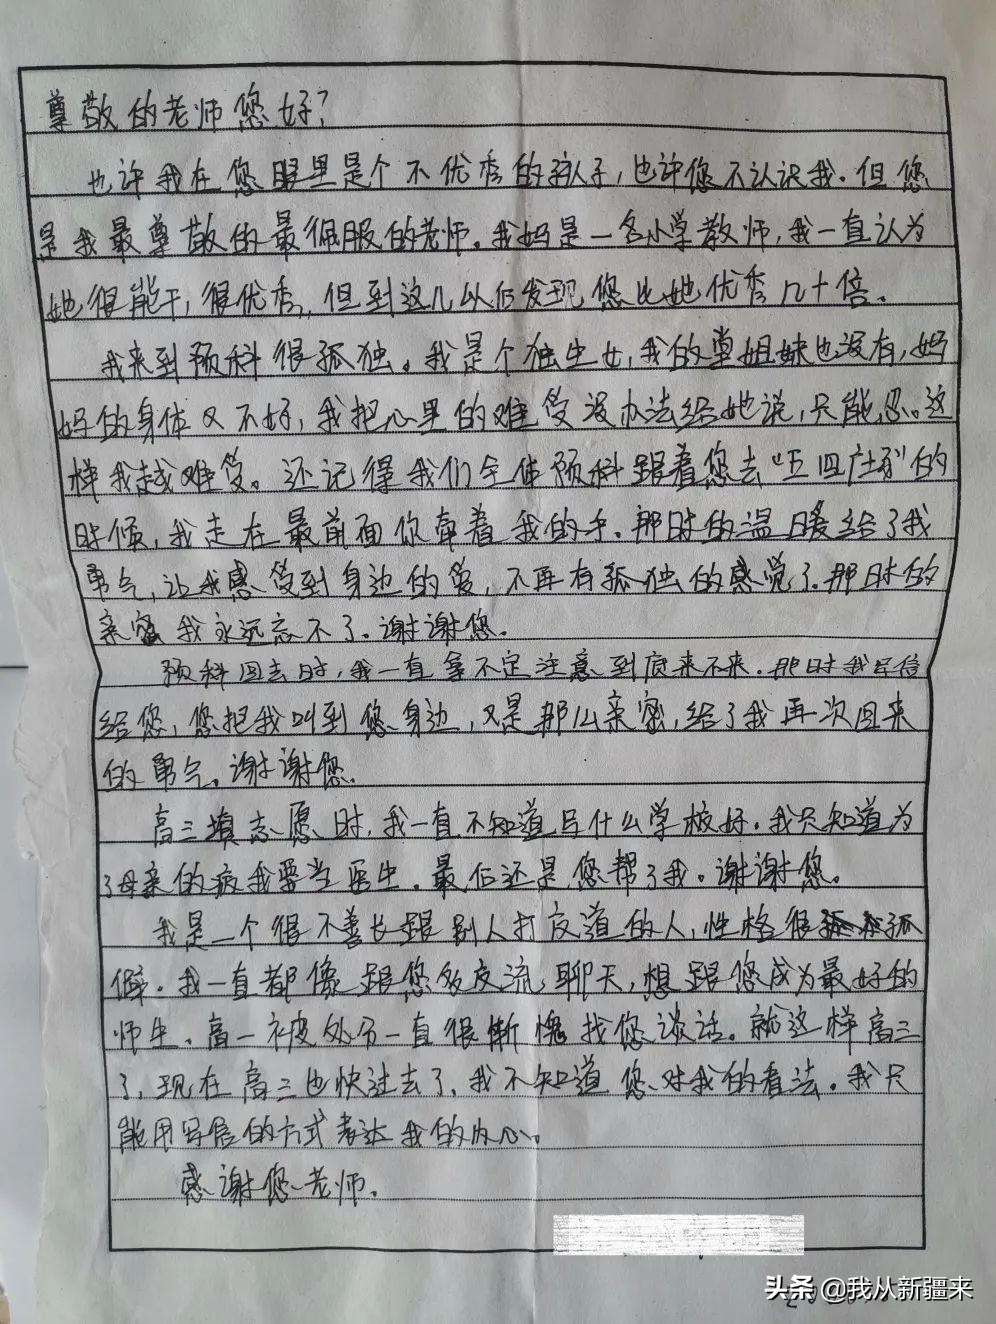 尊敬的老师您好？
也许我在您眼里是个不优秀的孩子，也许您不认识我．但您
是我最尊敬的最佩服的老师。我妈是一名小学教师，我一直认为
她很能干，很优秀，但到这儿以后发现您比她优秀几十倍．
我来到预科很孤独．我是个独生女，我的堂姐妹也没有，妈
妈的身体又不好，我把心里的难受没办法给她说，只能忍．这
样我越难受。还记得我们全体预科跟着您去“五四广场”的
时候，我走在最前面你牵着我的手．那时的温暖给了我
勇气，让我感受到身边的爱，不再有孤独的感觉了．那时的
亲密我永远忘不了．谢谢您．
预科回去时，我一直拿不定注意到底来不来．那时我写信
给您，您把我叫到您身边，又是那么亲密，给了我再次回来
的勇气。谢谢您．
高三填志愿时，我一直不知道写什么学校好．我只知道为
了母亲的病我要当医生．最后还是您帮了我。谢谢您．
我是一个很不善长跟别人打交道的人，性格很孤
僻．我一直都像跟您多交流，聊天，想跟您成为最好的
师生．高一被处分一直很惭愧找您谈话。就这样高三
了，现在高三也快过去了，我不知道您对我的看法．我只
能用写信的方式表达我的内心．
感谢您老师．
头条 @我从新疆来